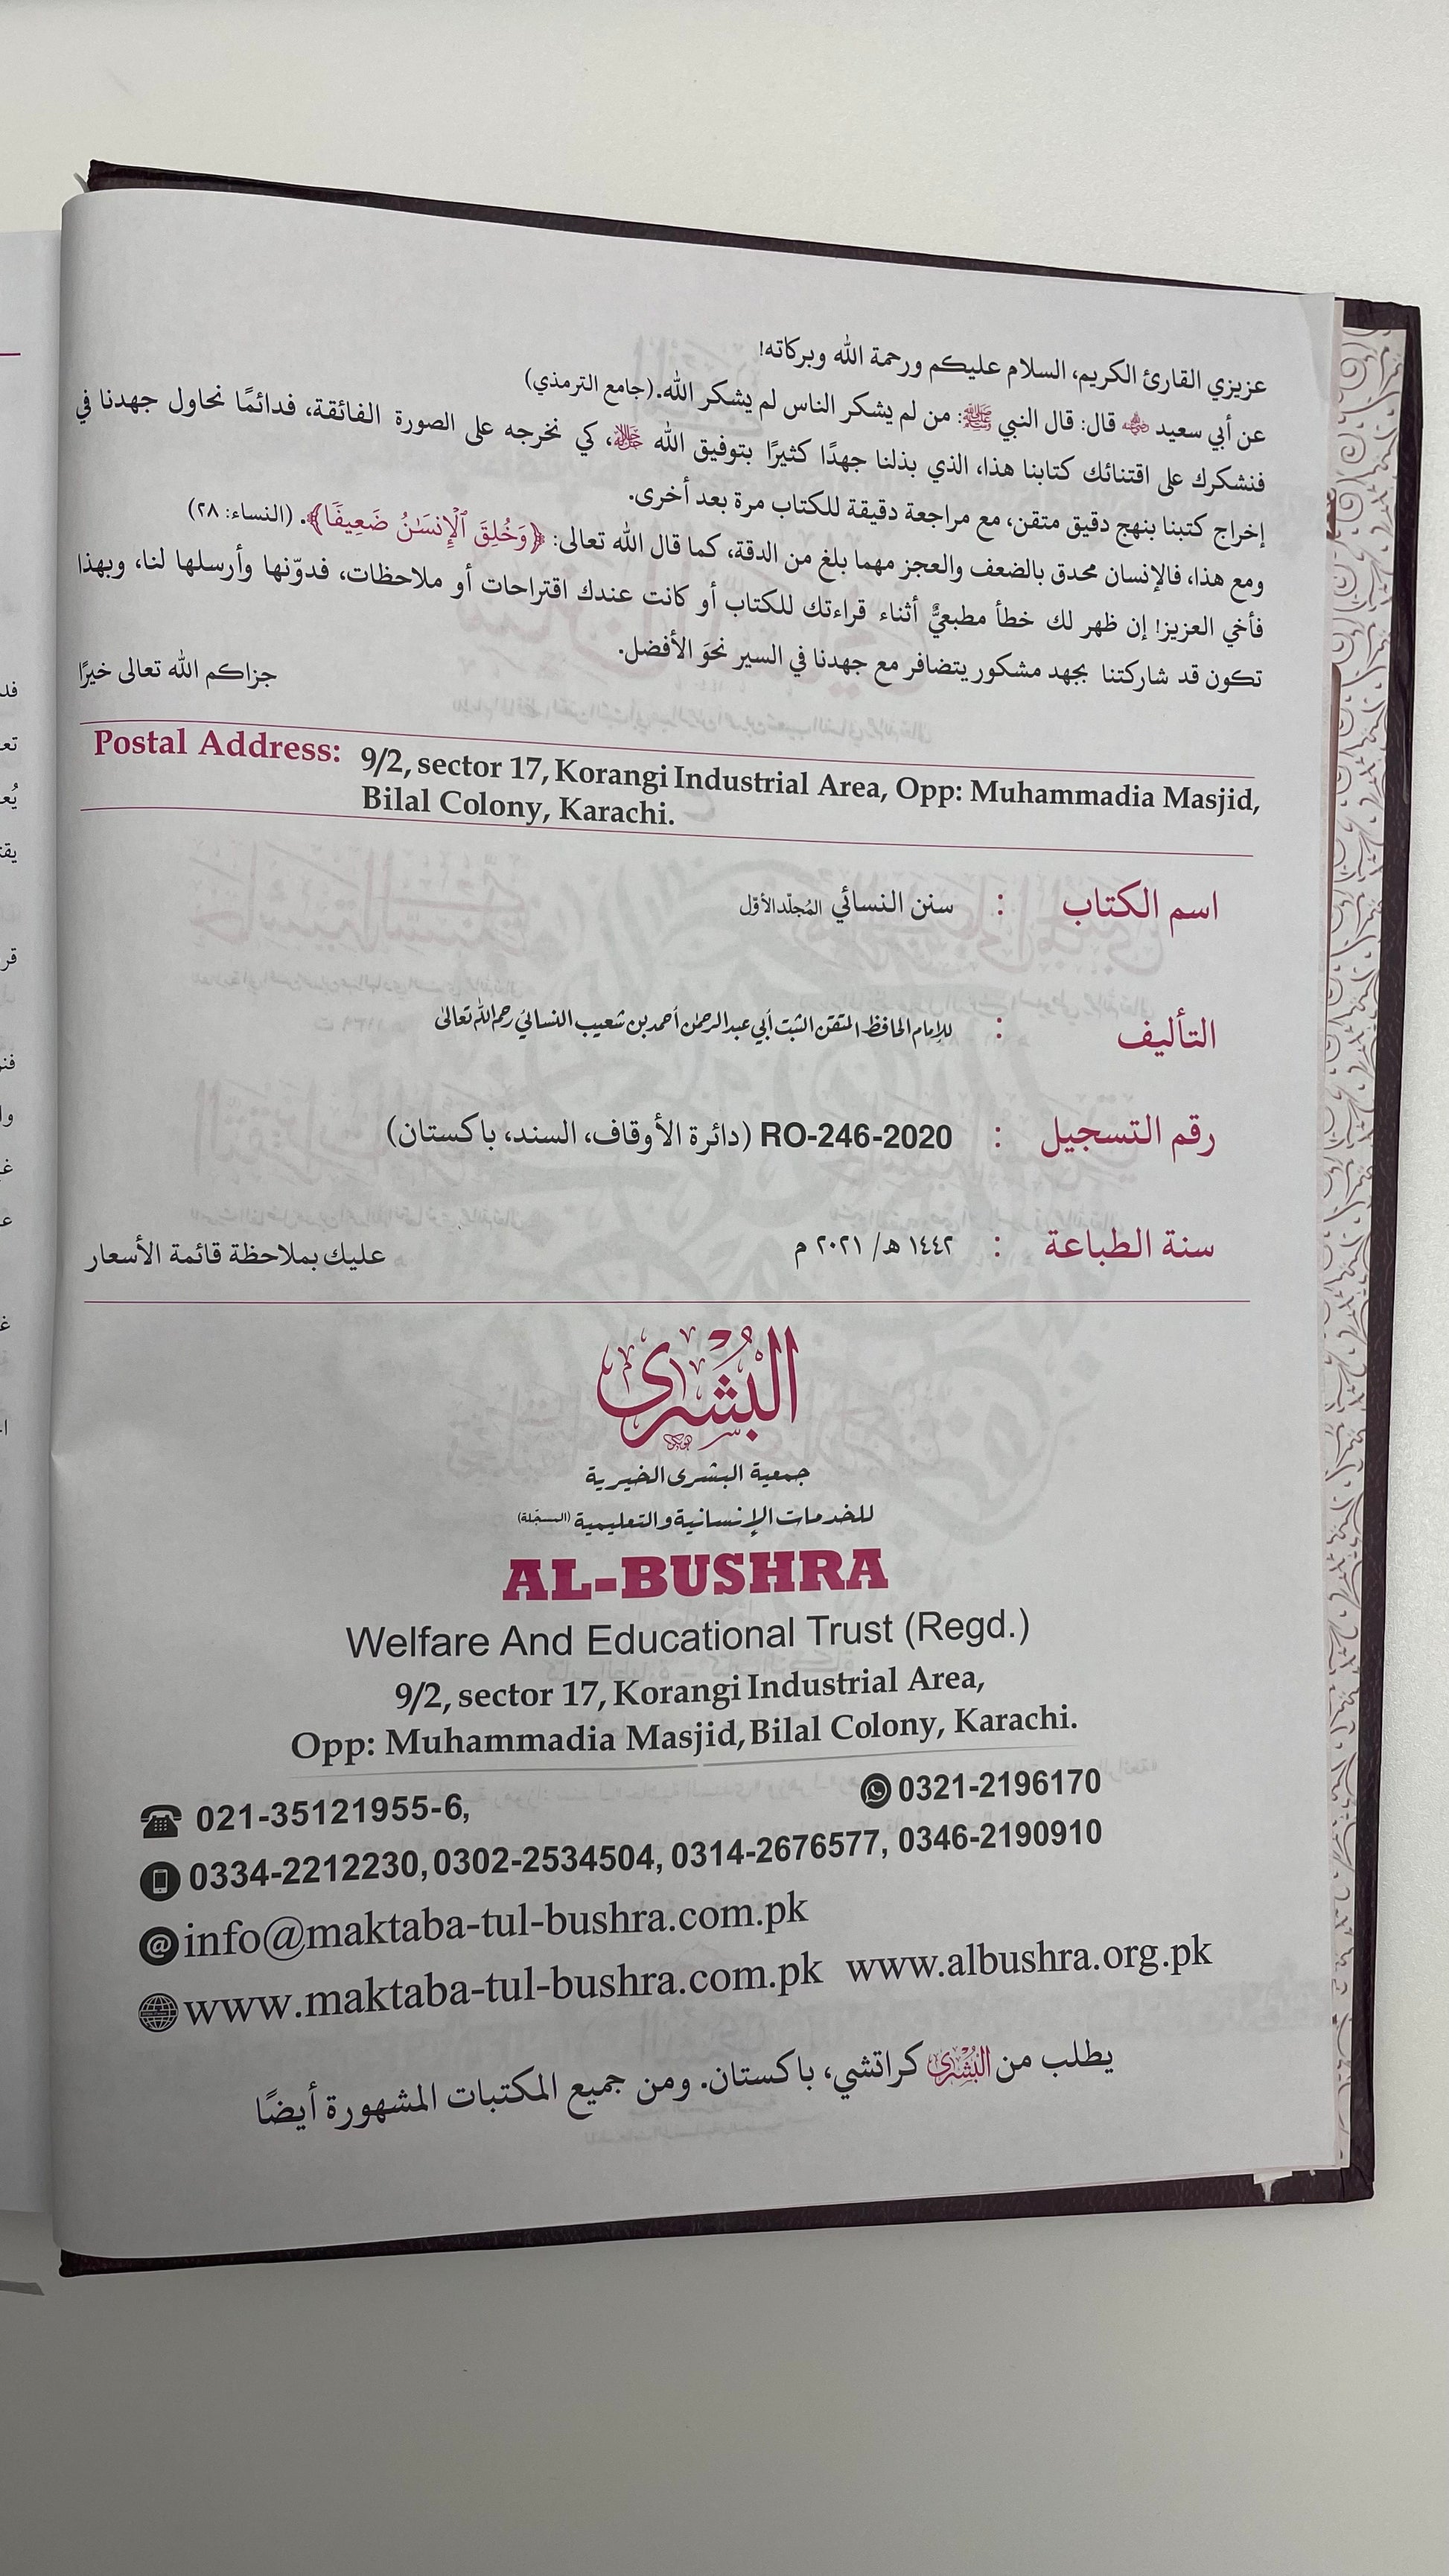 عزيزي القارئ الكريم، السلام عليكم ورحمة الله وبركاته!
عن أبي سعيد ﵁ قال: قال النبي ﷺ: من لم يشكر الناس لم يشكر الله. (جامع الترمذي)
فنشكرك على اقتنائك كتابنا هذا، الذي بذلنا جهدًا كثيرًا بتوفيق الله ﷻ، كي نخرجه على الصورة الفائقة، فدائمًا نحاول جهدنا في
إخراج كتبنا بنهج دقيق متقن، مع مراجعة دقيقة للكتاب مرة بعد أخرى.
ومع هذا، فالإنسان محدق بالضعف والعجز مهما بلغ من الدقة، كما قال الله تعالى: ﴿وَخُلِقَ ٱلْإِنسَـٰنُ ضَعِيفًا﴾. (النساء: ٢٨)
فأخي العزيز! إن ظهر لك خطأ مطبعيٌّ أثناء قراءتك للكتاب أو كانت عندك اقتراحات أو ملاحظات، فدوّنها وأرسلها لنا، وبهذا
تكون قد شاركتنا بجهد مشكور يتضافر مع جهدنا في السير نحوَ الأفضل.
جزاكم الله تعالى خيرًا
Postal Address: 9/2, sector 17, Korangi Industrial Area, Opp: Muhammadia Masjid,
Bilal Colony, Karachi.
اسم الكتاب : سنن النسائي المُجلّد الأوّل
التأليف : للإمام الحافظ المتقن الثبت أبي عبد الرحمٰن أحمد بن شعيب النسائي رحمه الله تعالىٰ
رقم التسجيل : RO-246-2020 (دائرة الأوقاف، السند، باكستان)
سنة الطباعة : ١٤٤٢ هـ/ ٢٠٢١ م
عليك بملاحظة قائمة الأسعار
البُشْرىٰ
جمعية البشرى الخيرية
للخدمات الإنسانية والتعليمية (المسجّلة)
AL-BUSHRA
Welfare And Educational Trust (Regd.)
9/2, sector 17, Korangi Industrial Area,
Opp: Muhammadia Masjid, Bilal Colony, Karachi.
021-35121955-6, 0321-2196170
0334-2212230, 0302-2534504, 0314-2676577, 0346-2190910
info@maktaba-tul-bushra.com.pk
www.maktaba-tul-bushra.com.pk www.albushra.org.pk
يطلب من البُشْرىٰ كراتشي، باكستان. ومن جميع المكتبات المشهورة أيضًا